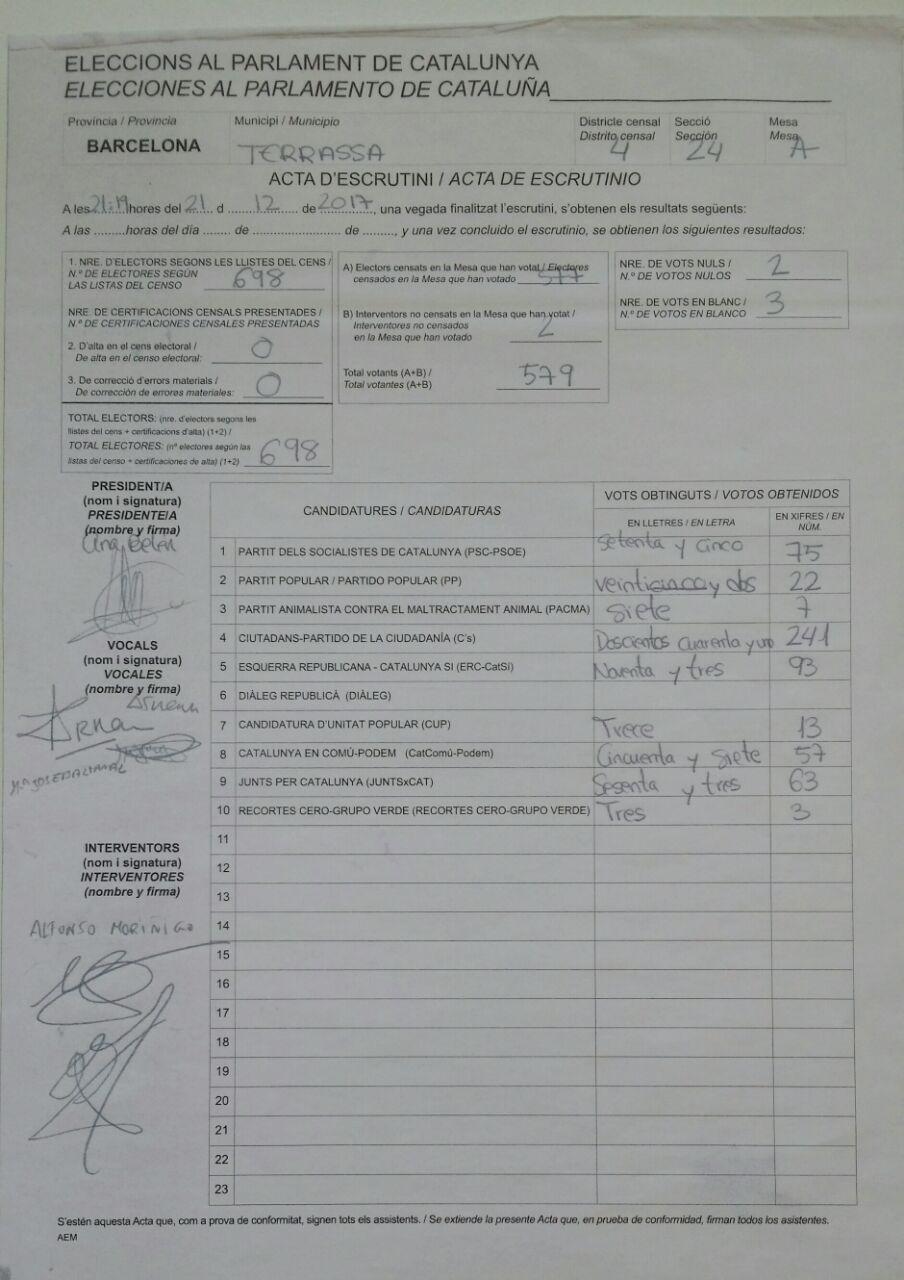 ELECCIONS AL PARLAMENT DE CATALUNYA
ELECCIONES AL PARLAMENTO DE CATALUÑA
Provincia / Provincia Municipi / Municipio Districte censal Secció Mesa
Distrito censal Sección Mesa
BARCELONA TERRASSA 4 24 A
ACTA D'ESCRUTINI / ACTA DE ESCRUTINIO
A les 21:19 hores del 21 d 12 de 2017, una vegada finalitzat l'escrutini, s'obtenen els resultats següents:
A las .........horas del día ...... de ....................... de ........., y una vez concluido el escrutinio, se obtienen los siguientes resultados:
1. NRE. D'ELECTORS SEGONS LES LLISTES DEL CENS /
N.º DE ELECTORES SEGÚN
LAS LISTAS DEL CENSO 698
NRE. DE CERTIFICACIONS CENSALS PRESENTADES /
N.º DE CERTIFICACIONES CENSALES PRESENTADAS
2. D'alta en el cens electoral /
De alta en el censo electoral: 0
3. De correcció d'errors materials /
De corrección de errores materiales: 0
TOTAL ELECTORS: (nre. d'electors segons les
llistes del cens + certificacions d'alta) (1+2) /
TOTAL ELECTORES: (nº electores según las
listas del censo + certificaciones de alta) (1+2) 698
A) Electors censats en la Mesa que han votat / Electores
censados en la Mesa que han votado 577
B) Interventors no censats en la Mesa que han votat /
Interventores no censados
en la Mesa que han votado 2
Total votants (A+B) /
Total votantes (A+B) 579
NRE. DE VOTS NULS /
N.º DE VOTOS NULOS 2
NRE. DE VOTS EN BLANC /
N.º DE VOTOS EN BLANCO 3
PRESIDENT/A
(nom i signatura)
PRESIDENTE/A
(nombre y firma)
Ana Belen
VOCALS
(nom i signatura)
VOCALES
(nombre y firma)
INTERVENTORS
(nom i signatura)
INTERVENTORES
(nombre y firma)
ALFONSO MORIÑIGO
CANDIDATURES / CANDIDATURAS VOTS OBTINGUTS / VOTOS OBTENIDOS
EN LLETRES / EN LETRA EN XIFRES / EN NÚM.
1 PARTIT DELS SOCIALISTES DE CATALUNYA (PSC-PSOE) Setenta y cinco 75
2 PARTIT POPULAR / PARTIDO POPULAR (PP) y dos 22
3 PARTIT ANIMALISTA CONTRA EL MALTRACTAMENT ANIMAL (PACMA) Siete 7
4 CIUTADANS-PARTIDO DE LA CIUDADANÍA (C's) Doscientos cuarenta y uno 241
5 ESQUERRA REPUBLICANA - CATALUNYA SI (ERC-CatSí) Noventa y tres 93
6 DIÀLEG REPUBLICÀ (DIÀLEG)
7 CANDIDATURA D'UNITAT POPULAR (CUP) Trece 13
8 CATALUNYA EN COMÚ-PODEM (CatComú-Podem) Cincuenta y siete 57
9 JUNTS PER CATALUNYA (JUNTSxCAT) Sesenta y tres 63
10 RECORTES CERO-GRUPO VERDE (RECORTES CERO-GRUPO VERDE) Tres 3
11
12
13
14
15
16
17
18
19
20
21
22
23
S'estén aquesta Acta que, com a prova de conformitat, signen tots els assistents. / Se extiende la presente Acta que, en prueba de conformidad, firman todos los asistentes.
AEM